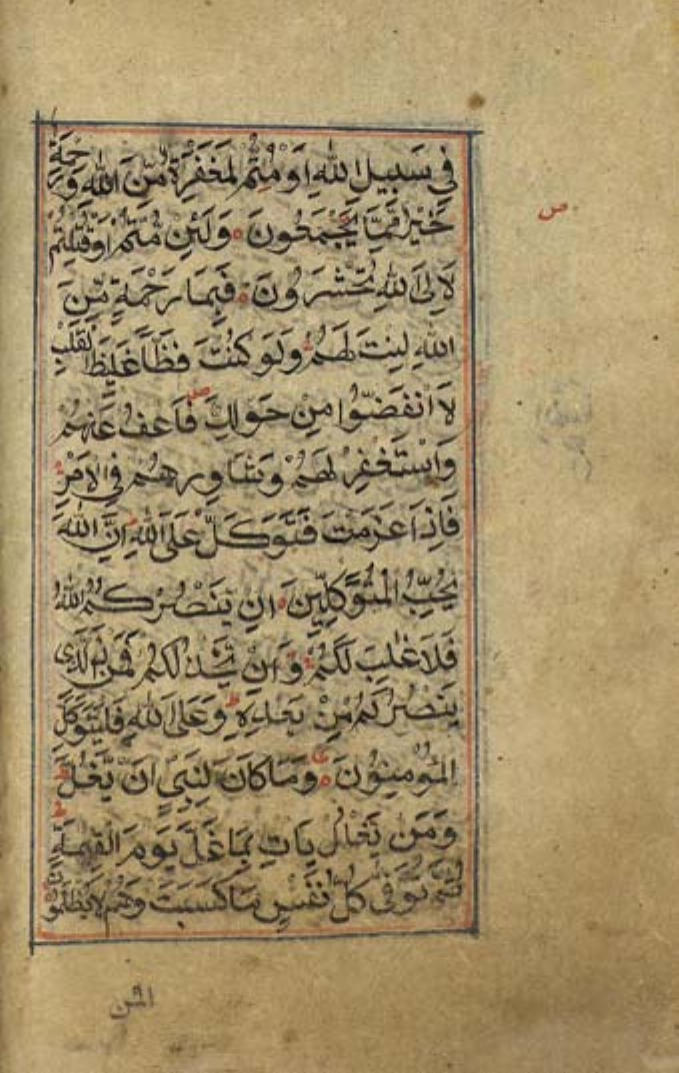 فِي سَبِيلِ اللهِ اَوْ مُتُّمْ لَمَغْفِرَةٌ مِّنَ اللهِ وَرَحْمَةٌ
خَيْرٌ مِّمَّا يَجْمَعُونَ وَلَئِنْ مُّتُّمْ اَوْ قُتِلْتُمْ
لَاِلَى اللهِ تُحْشَرُونَ فَبِمَا رَحْمَةٍ مِّنَ
اللهِ لِنْتَ لَهُمْ وَلَوْ كُنْتَ فَظًّا غَلِيظَ الْقَلْبِ
لَا انْفَضُّوا مِنْ حَوْلِكَ فَاعْفُ عَنْهُمْ
وَاسْتَغْفِرْ لَهُمْ وَشَاوِرْهُمْ فِي الْاَمْرِ
فَاِذَا عَزَمْتَ فَتَوَكَّلْ عَلَى اللهِ اِنَّ اللهَ
يُحِبُّ الْمُتَوَكِّلِينَ اِنْ يَنْصُرْكُمُ اللهُ
فَلَا غَالِبَ لَكُمْ وَاِنْ يَخْذُلْكُمْ فَمَنْ ذَا الَّذِي
يَنْصُرُكُمْ مِنْ بَعْدِهِ وَعَلَى اللهِ فَلْيَتَوَكَّلِ
الْمُؤْمِنُونَ وَمَا كَانَ لِنَبِيٍّ اَنْ يَّغُلَّ
وَمَنْ يَغْلُلْ يَاْتِ بِمَا غَلَّ يَوْمَ الْقِيٰمَةِ
ثُمَّ تُوَفّٰى كُلُّ نَفْسٍ مَا كَسَبَتْ وَهُمْ لَا يُظْلَمُونَ
ص
افمن